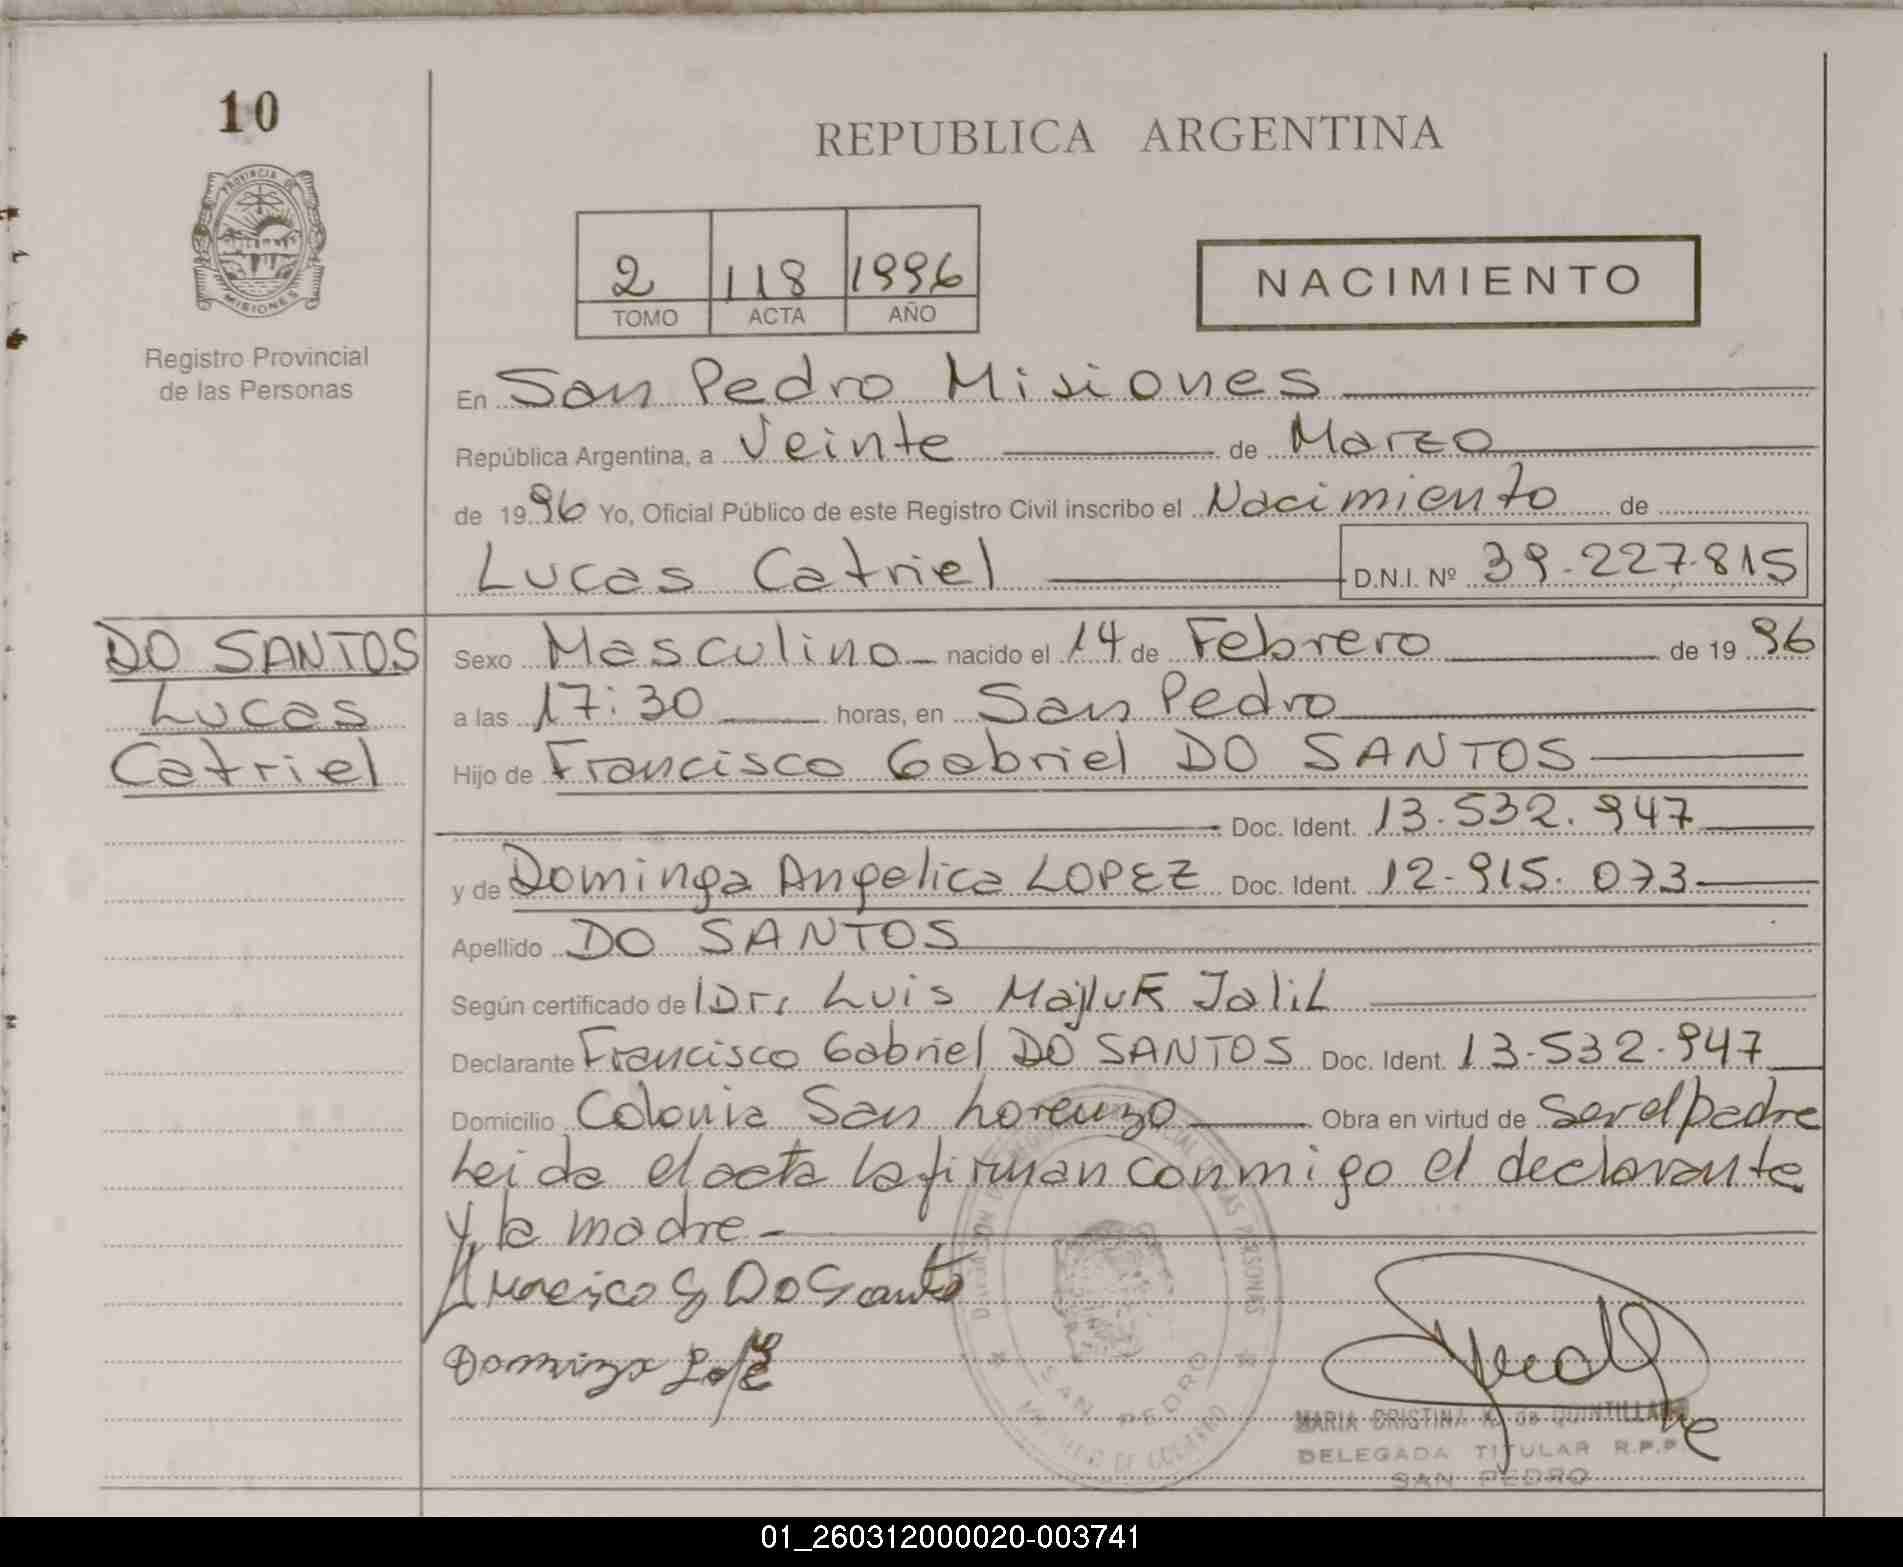 10
REPUBLICA ARGENTINA
PROVINCIA DE
MISIONES
Registro Provincial
de las Personas
2 118 1996
TOMO ACTA AÑO
NACIMIENTO
En San Pedro Misiones
República Argentina, a Veinte de Marzo
de 1996 Yo, Oficial Público de este Registro Civil inscribo el Nacimiento de
Lucas Catriel D.N.I. Nº 39.227.815
DO SANTOS
Lucas
Catriel
Sexo Masculino nacido el 14 de Febrero de 1996
a las 17:30 horas, en San Pedro
Hijo de Francisco Gabriel DO SANTOS
Doc. Ident. 13.532.947
y de Dominga Angelica LOPEZ Doc. Ident. 12.915.073
Apellido DO SANTOS
Según certificado de Dr. Luis Majluf Jalil
Declarante Francisco Gabriel DO SANTOS Doc. Ident. 13.532.947
Domicilio Colonia San Lorenzo Obra en virtud de ser el padre
Leida el acta la firman conmigo el declarante
y la madre
Francisco G Do Santo
Dominga Lopez
SAN PEDRO
MARIA CRISTINA K. de QUINTILLAN
DELEGADA TITULAR R.P.P
SAN PEDRO
01_260312000020-003741